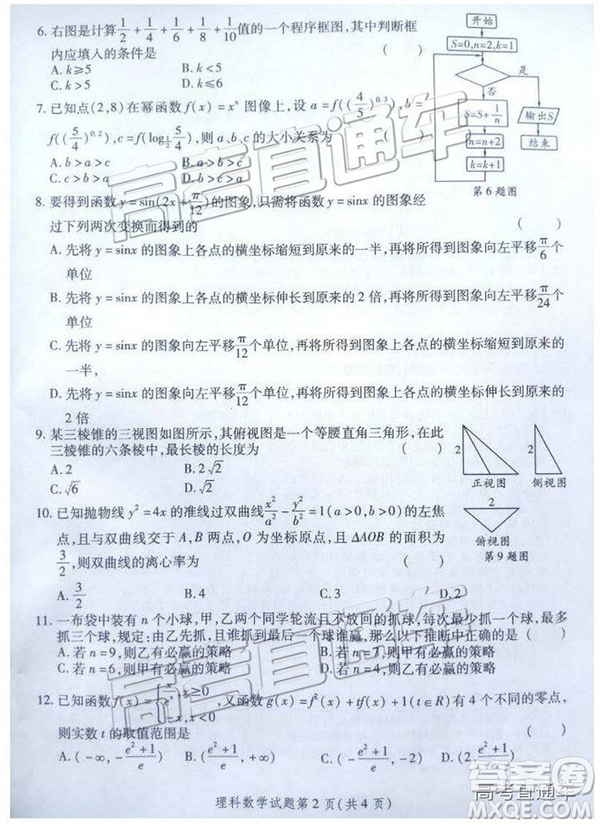 6. 右图是计算 1/2 + 1/4 + 1/6 + 1/8 + 1/10 值的一个程序框图,其中判断框
内应填入的条件是 ( )
A. k≥5 B. k>5
C. k<5 D. k≤6
开始
S=0,n=2,k=1
是
否
S=S+1/n
n=n+2
k=k+1
输出S
结束
第6题图
7. 已知点(2,8)在幂函数 f(x)=xⁿ 图像上,设 a=f((4/5)^0.3), b=
f((5/4)^0.2), c=f(log_{1/2} 5/4),则 a、b、c 的大小关系为 ( )
A. b>a>c B. a>b>c
C. c>b>a D. b>c>a
8. 要得到函数 y=sin(2x+π/12)的图象,只需将函数 y=sinx 的图象经
过下列两次变换而得到的 ( )
A. 先将 y=sinx 的图象上各点的横坐标缩短到原来的一半,再将所得到图象向左平移π/6个
单位
B. 先将 y=sinx 的图象上各点的横坐标伸长到原来的2倍,再将所得到图象向左平移π/24个
单位
C. 先将 y=sinx 的图象向左平移π/12个单位,再将所得到图象上各点的横坐标缩短到原来的
一半,
D. 先将 y=sinx 的图象向左平移π/12个单位,再将所得到图象上各点的横坐标伸长到原来的
2倍
9. 某三棱锥的三视图如图所示,其俯视图是一个等腰直角三角形,在此
三棱锥的六条棱中,最长棱的长度为 ( )
A. 2 B. 2√2
C. √6 D. 2√3
2
2
正视图 侧视图
2
俯视图
第9题图
10. 已知抛物线 y²=4x 的准线过双曲线 x²/a² - y²/b² =1(a>0,b>0)的左焦
点,且与双曲线交于 A,B 两点,O 为坐标原点,且 ΔAOB 的面积为
3/2,则双曲线的离心率为 ( )
A. 3/2 B. 4 C. 3 D. 2
11. 一布袋中装有 n 个小球,甲,乙两个同学轮流且不放回的抓球,每次最少抓一个球,最多
抓三个球,规定:由乙先抓,且谁抓到最后一个球谁赢,那么以下推断中正确的是 ( )
A. 若 n=9,则乙有必赢的策略 B. 若 n=7,则乙有必赢的策略
C. 若 n=6,则甲有必赢的策略 D. 若 n=4,则乙有必赢的策略
12. 已知函数 f(x)= x≥0,又函数 g(x)=f²(x)+tf(x)+1(t∈R)有4个不同的零点,
则实数 t 的取值范围是 ( )
A. (-∞, -(e²+1)/e) B. ((e²+1)/e, C. (-(e²+1)/e, -2) D. (2,(e²+1)/e)
理科数学试题第2页(共4页)
高考直通车
高考直通车
高考直通车
答案圈
MXQE.COM